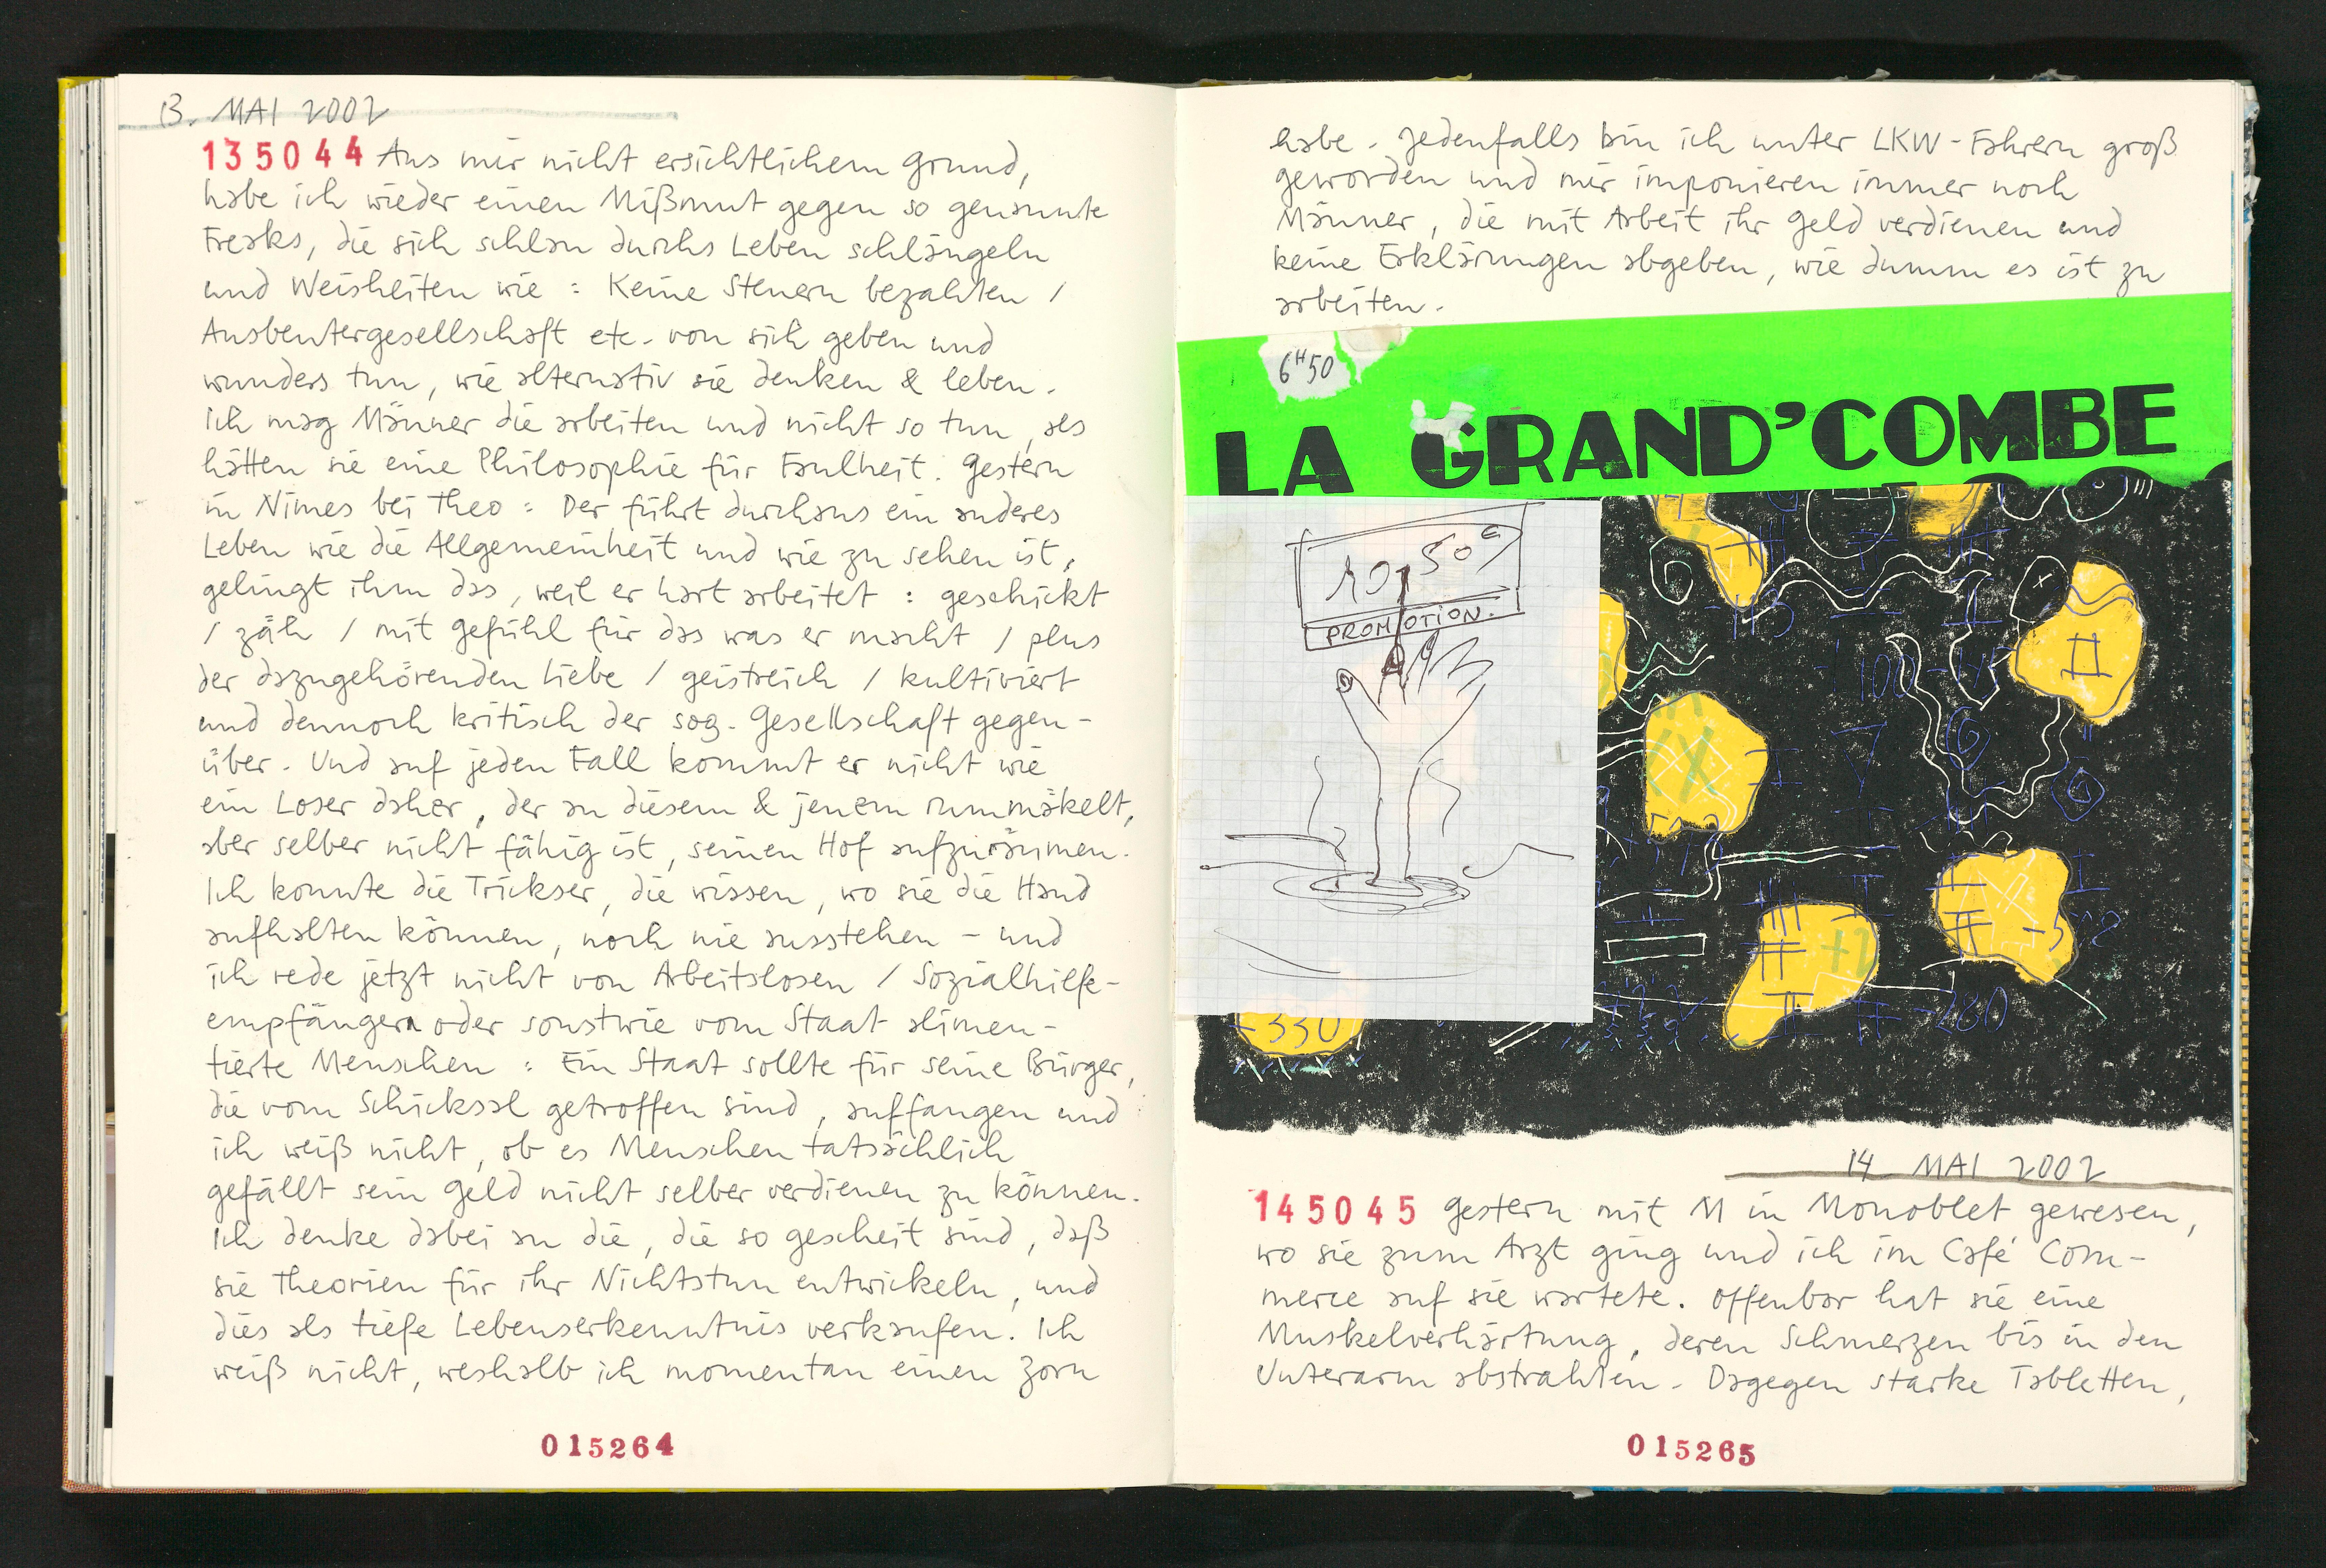 13. MAI 2002
135044 Aus mir nicht ersichtlichem Grund,
habe ich wieder einen Mißmut gegen so genannte
Freaks, die sich schlau durchs Leben schlängeln
und Weisheiten wie : Keine Steuern bezahlen /
Ausbeutergesellschaft etc. von sich geben und
wunders tun, wie alternativ sie denken & leben.
Ich mag Männer die arbeiten und nicht so tun, als
hätten sie eine Philosophie für Faulheit. Gestern
in Nimes bei Theo : Der führt durchaus ein anderes
Leben wie die Allgemeinheit und wie zu sehen ist,
gelingt ihm das, weil er hart arbeitet : geschickt
/ zäh / mit Gefühl für das was er macht / plus
der dazugehörenden Liebe / geistreich / kultiviert
und dennoch kritisch der sog. Gesellschaft gegen-
über. Und auf jeden Fall kommt er nicht wie
ein Loser daher, der an diesem & jenem rummäkelt,
aber selber nicht fähig ist, seinen Hof aufzuräumen.
Ich konnte die Trickser, die wissen, wo sie die Hand
aufhalten können, noch nie ausstehen - und
ich rede jetzt nicht von Arbeitslosen / Sozialhilfe-
empfängern oder sonstwie vom Staat alimen-
tierte Menschen : Ein Staat sollte für seine Bürger,
die vom Schicksal getroffen sind, auffangen und
ich weiß nicht, ob es Menschen tatsächlich
gefällt sein Geld nicht selber verdienen zu können.
Ich denke dabei an die, die so gescheit sind, daß
sie Theorien für ihr Nichtstun entwickeln, und
dies als tiefe Lebenserkenntnis verkaufen. Ich
weiß nicht, weshalb ich momentan einen Zorn
015264
habe. Jedenfalls bin ich unter LKW-Fahrern groß
geworden und mir imponieren immer noch
Männer, die mit Arbeit ihr Geld verdienen und
keine Erklärungen abgeben, wie dumm es ist zu
arbeiten.
6H50
LA GRAND'COMBE
10,50€
PROMOTION.
-113
-100
-330
-280
14 MAI 2002
145045 Gestern mit M in Monoblet gewesen,
wo sie zum Arzt ging und ich im Café Com-
merce auf sie wartete. Offenbar hat sie eine
Muskelverhärtung, deren Schmerzen bis in den
Unterarm abstrahlen. Dagegen starke Tabletten,
015265